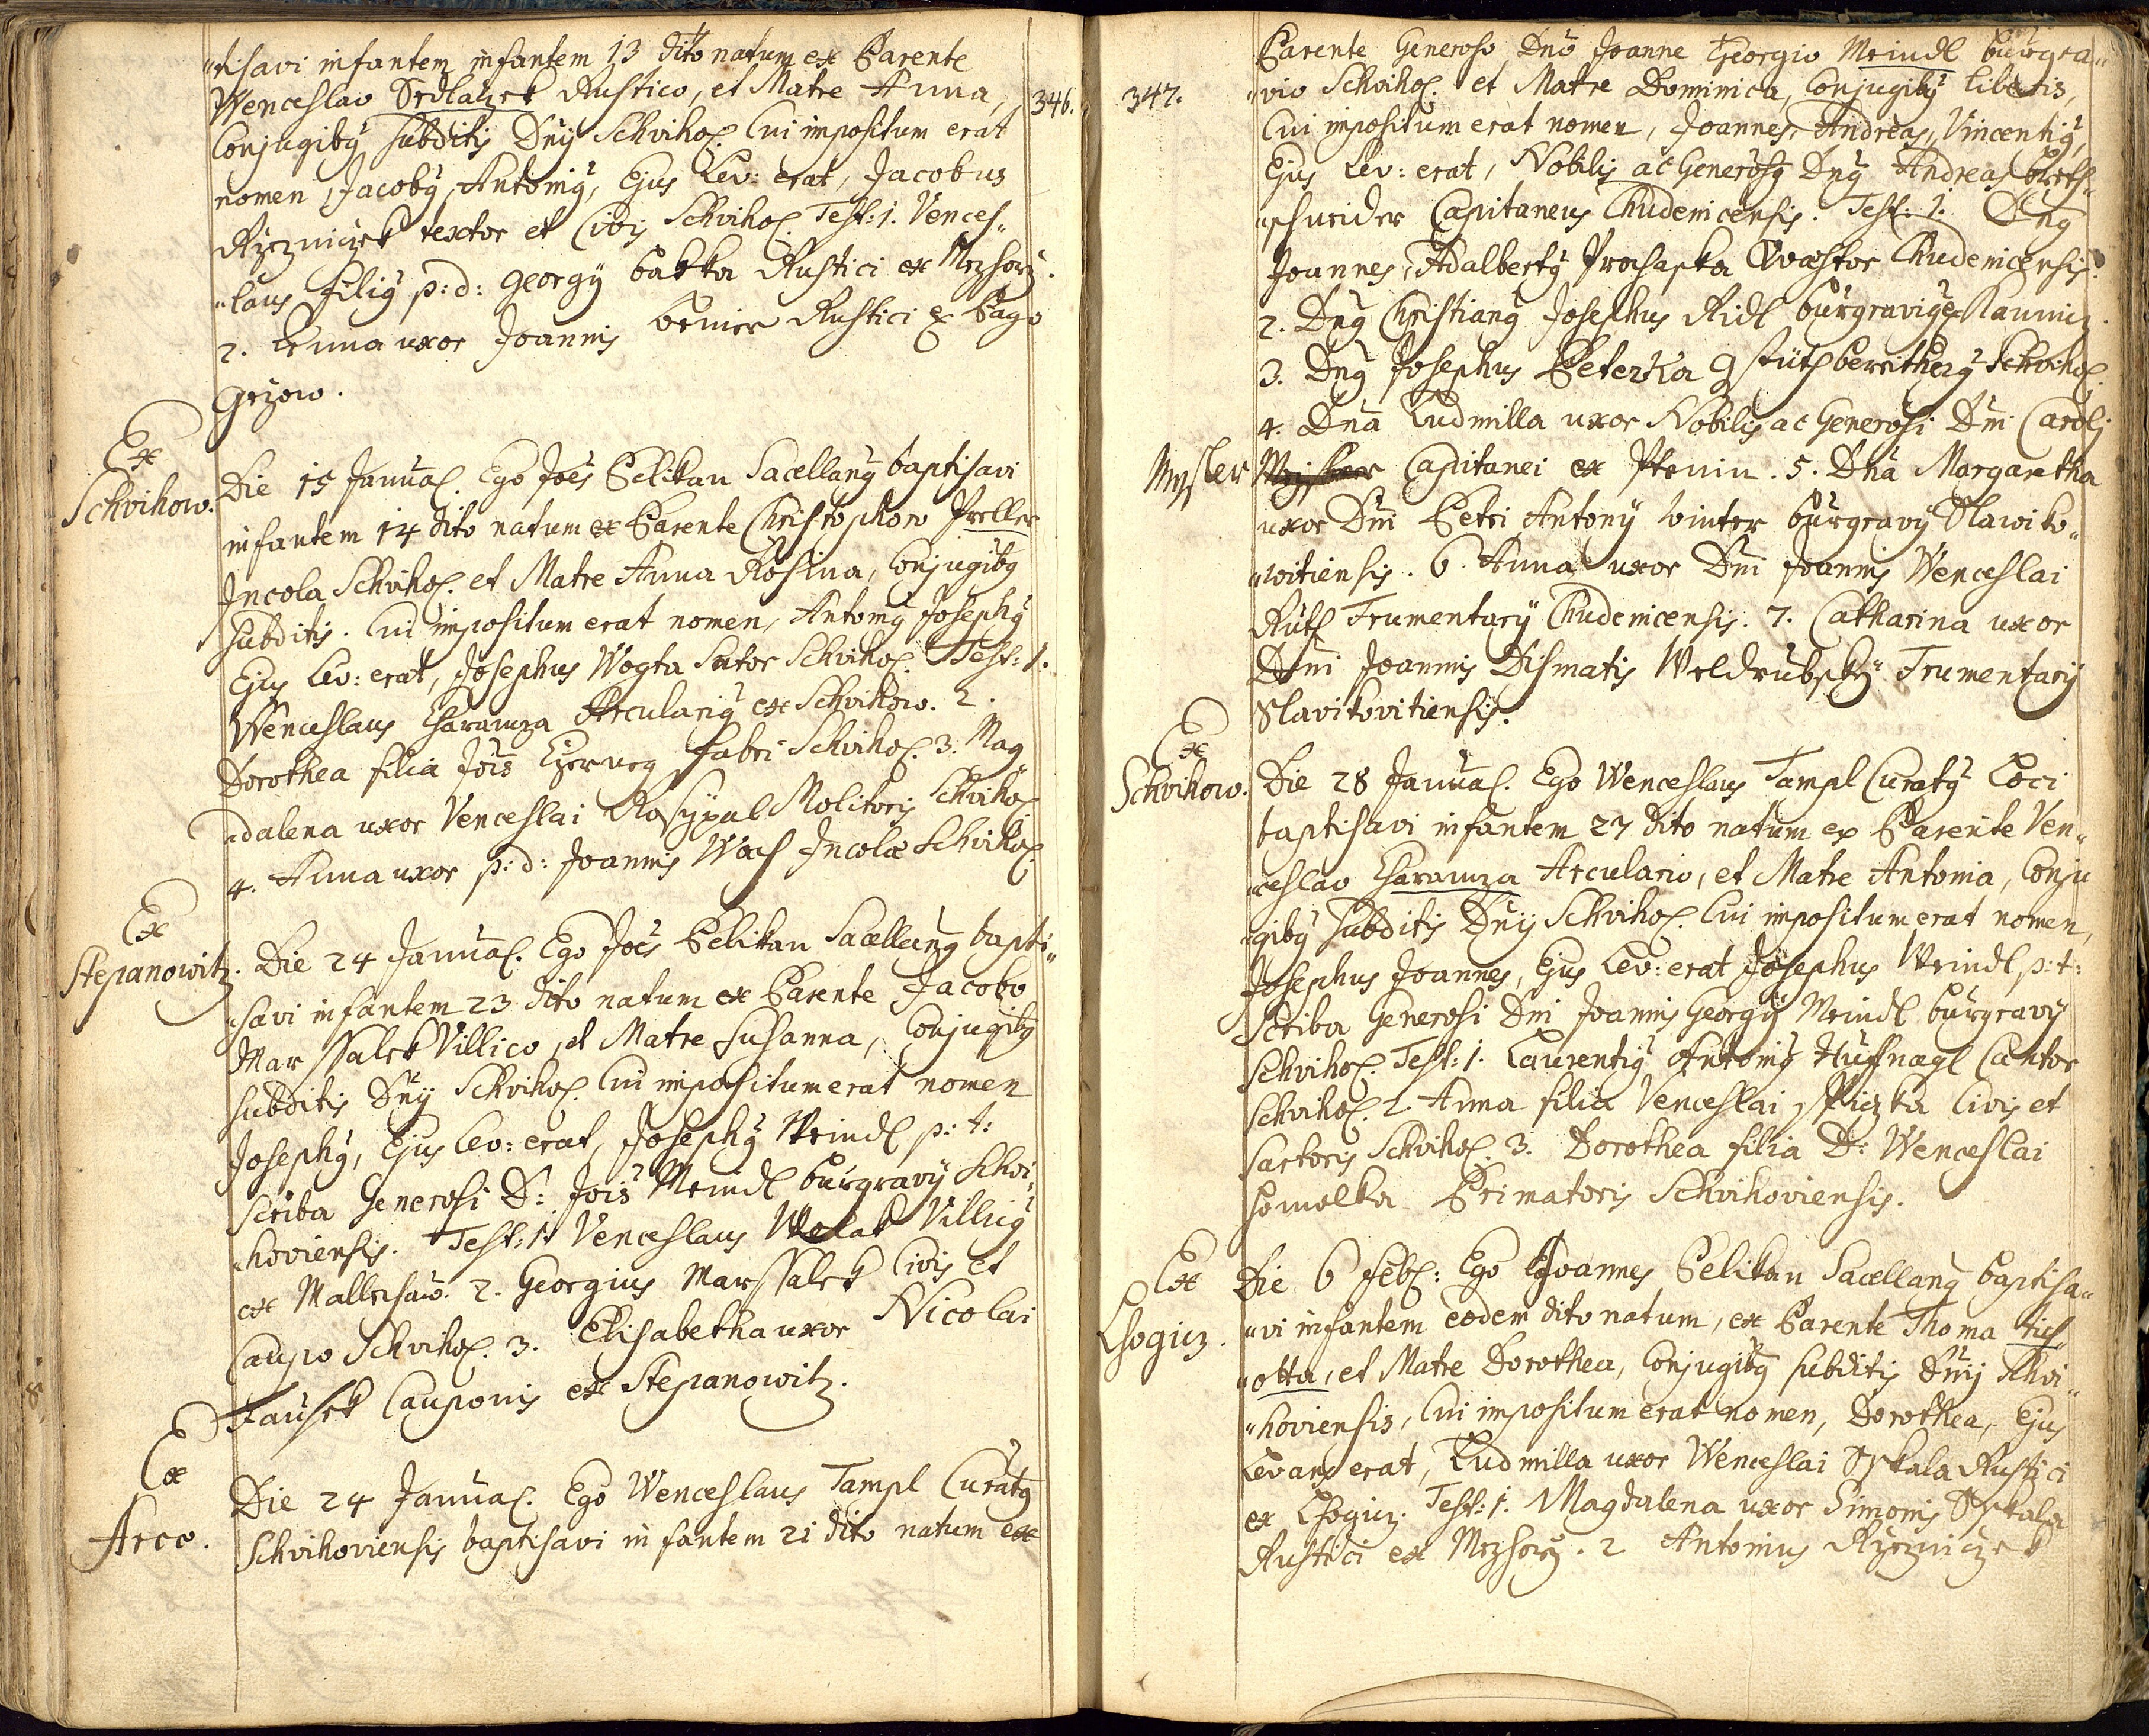 "tisavi infantem infantem 13 dito natum ex Parente
Wenceslao Sedlaczek Rustico, et Matre Anna,
346.
Conjugibꝰ subditis Dnÿ Schviho. Cui impositum erat
nomen, Jacobꝰ, Antoniꝰ, Ejus Lev: erat, Jacobus
Rzezniczek textor et Civis Schviho. Test: 1. Vences"
"laus filiꝰ p: d: Georgÿ Cakka Rustici ex Mezhorz.
2. Anna uxor Joannis Rustici ex Pago
Grzow.
Ex
Schvihow.
Die 15 Janua. Ego Joes Pelikan Sacellanꝰ baptisavi
infantem 14 dito natum ex Parente Christophoro Preller
Incola Schviho. et Matre Anna Rosina, Conjugibꝰ
subditis. Cui impositum erat nomen, Antoniꝰ Josephꝰ
Ejus Lev: erat, Josephus Wogta Sutor Schviho. Test: 1.
Wenceslaus Charamza Arculariꝰ ex Schvihow. 2.
Dorothea filia Jois Czerney fabri Schviho. 3. Mag"
"dalena uxor Venceslai Rosypal Molitoris Schviho.
4. Anna uxor p: d: Joannis Wach Incolæ Schviho.
Ex
Stepanowitz.
Die 24 Janua. Ego Joes Pelikan Sacellanꝰ bapti"
"savi infantem 23 dito natum ex Parente Jacobo
Marssalek Villico, et Matre Susanna, Conjugibꝰ
subditis Dnÿ Schviho. Cui impositum erat nomen
Josephꝰ, Ejus Lev: erat, Josephꝰ Meindl p: t:
Scriba Generosi D: Jois Meindl burgravÿ Schvi"
"hoviensis. Test: 1. Venceslaus Welat Villicꝰ
ex Mallechaw. 2. Georgius Marssalek Civis et
Caupo Schviho. 3. Elisabetha uxor Nicolai
Fausek Cauponis ex Stepanowitz.
Ex
Arce.
Die 24 Janua. Ego Wenceslaus Tampl Curatꝰ
Schvihoviensis baptisavi infantem 21 dito natum ex
347.
Parente Generoso Dno Joanne Georgio Meindl burgra"
"vio Schviho. et Matre Dominica, Conjugibꝰ liberis,
Cui impositum erat nomen, Joannes, Andreas, Vincentiꝰ,
Ejus Lev: erat, Nobilis ac Generosꝰ Dnꝰ Andreas breth"
"schneider Capitaneus Chudenicensis. Test: 1. Dnꝰ
Joannes, Adalbertꝰ Prochaska Quæstor Chudenicensis.
2. Dnꝰ Christianꝰ Josephus Ridl burgraviꝰ ex Kaunicz.
3. Dnꝰ Josephus Peterka Schviho.
4. Dna Ludmilla uxor Nobilis ac Generosi Dni Caroli
Mysler Capitanei ex Ptenin. 5. Dna Margaretha
uxor Dni Petri Antonÿ Winter burgravÿ Slawiko"
"witiensis. 6. Anna uxor Dni Joannis Wenceslai
Ruth Frumentarÿ Chudenicensis. 7. Catharina uxor
Dni Joannis Dismatis Weldrubskÿ Frumentarÿ
Slavikovitiensis.
Ex
Schvihow.
Die 28 Janua. Ego Wenceslaus Tampl Curatꝰ Loci
baptisavi infantem 27 dito natum ex Parente Ven"
"ceslao Charamza Arculario, et Matre Antonia, Conju
"gibꝰ subditis Dnÿ Schviho. Cui impositum erat nomen,
Josephus Joannes, Ejus Lev: erat Josephus Meindl p: t:
Scriba Generosi Dni Joannis Georgÿ Meindl burgravÿ
Schviho. Test: 1. Laurentiꝰ Antoniꝰ Hufnagl Cantor
Schviho. 2. Anna filia Venceslai Civis et
sartoris Schviho. 3. Dorothea filia D: Wenceslai
homolka Primatoris Schvihoviensis.
Ex
Lhogicz.
Die 6 Feb: Ego Joannes Pelikan Sacellanꝰ baptisa"
"vi infantem eodem dito natum, ex Parente Thoma Tich"
"otta, et Matre Dorothea, Conjugibꝰ subditis Dnÿ Schvi"
"hoviensis, Cui impositum erat nomen, Dorothea, Ejus
Levans erat, Ludmilla uxor Wenceslai Sskala Rustici
ex Lhogicz. Test: 1. Magdalena uxor Simonis Sskala
Rustici ex Mezhorz. 2 Antonius Rzezniczek